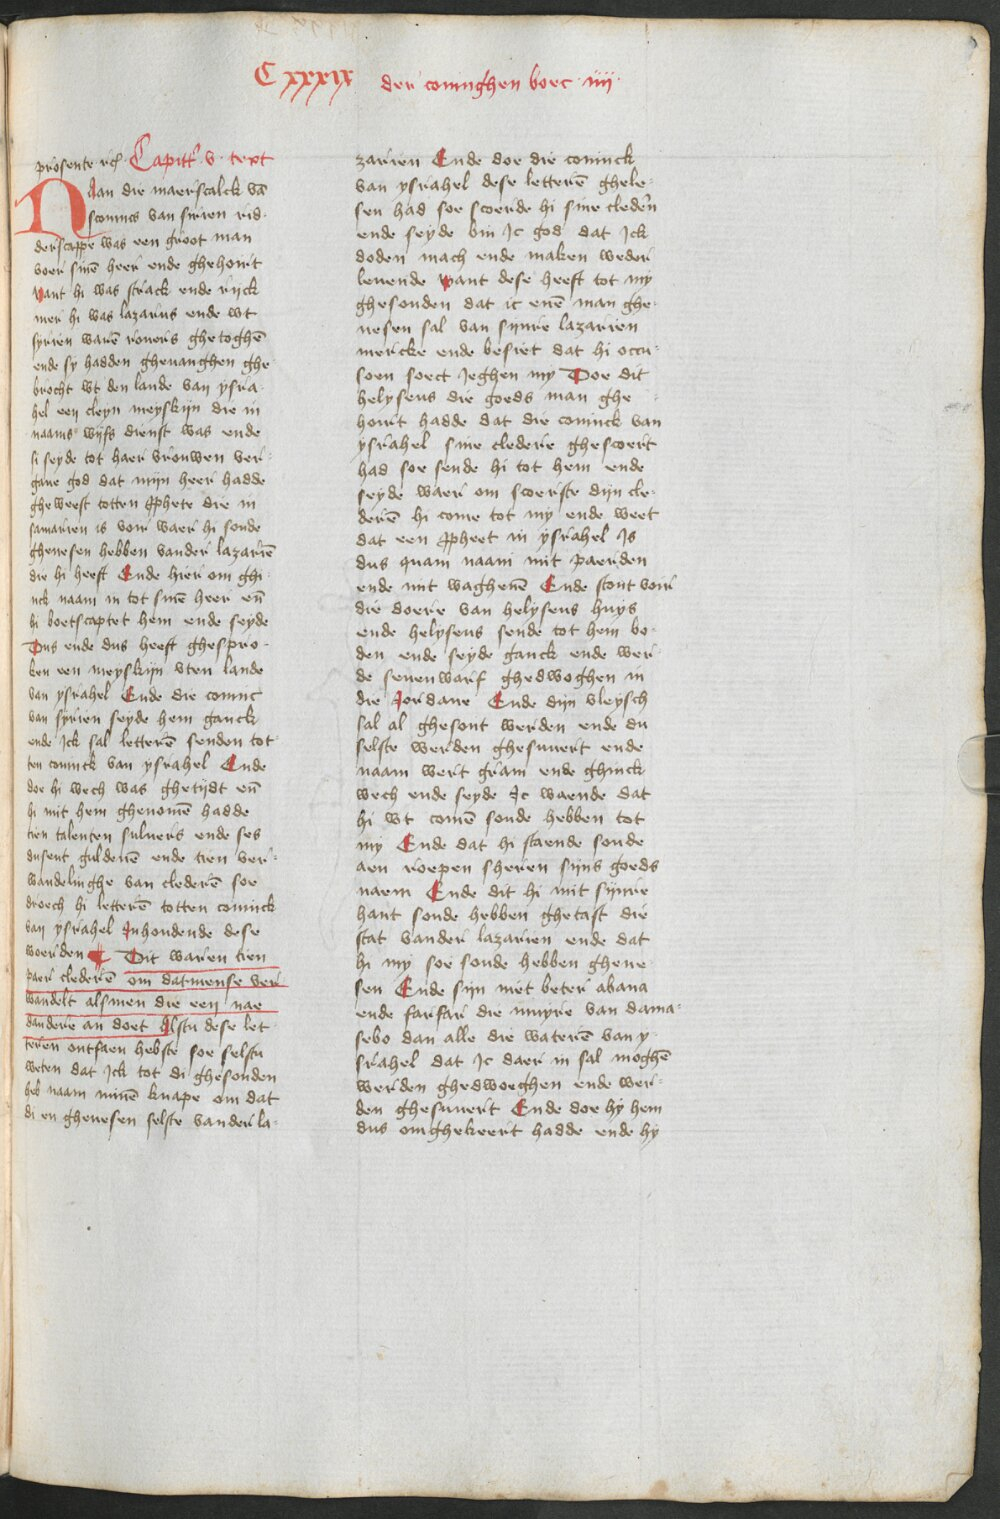 C xxxix der coninghen boec · iiij ·
Capittel · v · text
Naan die maerscalck vā
sconincs van sirien rid-
derscappe was een groot man
voer sinē heer ende ghehoirt
want hi was strack ende rijck
mer hi was lazarus ende wt
syrien warē rovers ghetoghē
ende sy hadden ghevanghen ghe-
brocht wt den lande van ysra-
hel een cleyn meyskijn die in
naams wijfs dienst was ende
si seyde tot haer vrouwen ver-
gave god dat mijn heer hadde
gheweest totten ppheten die in
samarien is voir waer hi soude
ghenesen hebben vander lazariē
die hi heeft Ende hier om ghi-
nck naam in tot sinē heer eñ
hi boetscaptet hem ende seyde
Dus ende dus heeft ghespro-
ken een meyskijn vten lande
van ysrahel Ende die coninc
van syrien seyde hem ganck
ende Ick sal letterē senden tot-
ten coninck van ysrahel Ende
doe hi wech was ghetijdt eñ
hi mit hem ghenomē hadde
tien talenten sulvers ende ses
dusent guldenē ende tien ver-
wandelinghe van clederē soe
droech hi letterē totten coninck
van ysrahel Inhoudende dese
woerden Dit waren tien
paer clederē om datmense ver
wandelt alsmen die een nae
dandere an doet Alstu dese let-
teren ontfaen hebste soe selstu
weten dat Ick tot di ghesonden
heb naam minē knape om dat
di en ghenesen selste vander la-
zarien Ende doe die coninck
van ysrahel dese letterē ghele-
sen had soe scoerde hi sine cledern
ende seyde bin Ic god dat Ick
doden mach ende maken weder
levende want dese heeft tot my
ghesonden dat ic enē man ghe-
nesen sal van sijnre lazarien
mercke ende besiet dat hi occu-
soen soect Jeghen my Doe dit
helyseus die goeds man ghe-
hoirt hadde dat die coninck van
ysrahel sine cledere ghescoert
had soe sende hi tot hem ende
seyde waer om scoerste dijn cle-
derē hi come tot my ende weet
dat een ppheet in ysrahel Is
dus quam naam mit paerden
ende mit waghenē Ende stont voir
die doere van helyseus huys
ende helyseus sende tot hem bo-
den ende seyde ganck ende wer-
de sevenwarf ghedwoghen in
die Jordane Ende dijn vleysch
sal al ghesont werden ende du
selste werden ghesuvert ende
naam wert gram ende ghinck
wech ende seyde Ic waende dat
hi wt comē soude hebben tot
my Ende dat hi staende soude
aen roepen sheren sijns goeds
naem Ende dit hi mit sijnre
hant soude hebben ghetast die
stat vander lazarien ende dat
hi my soe soude hebben ghene-
sen Ende sijn niet beter abana
ende farfar die rivyre van dama-
sebo dan alle die waterē van y-
srahel dat Ic daer in sal moghē
werden ghedwoeghen ende wer-
den ghesuvert Ende doe hy hem
dus omghekeert hadde ende hy